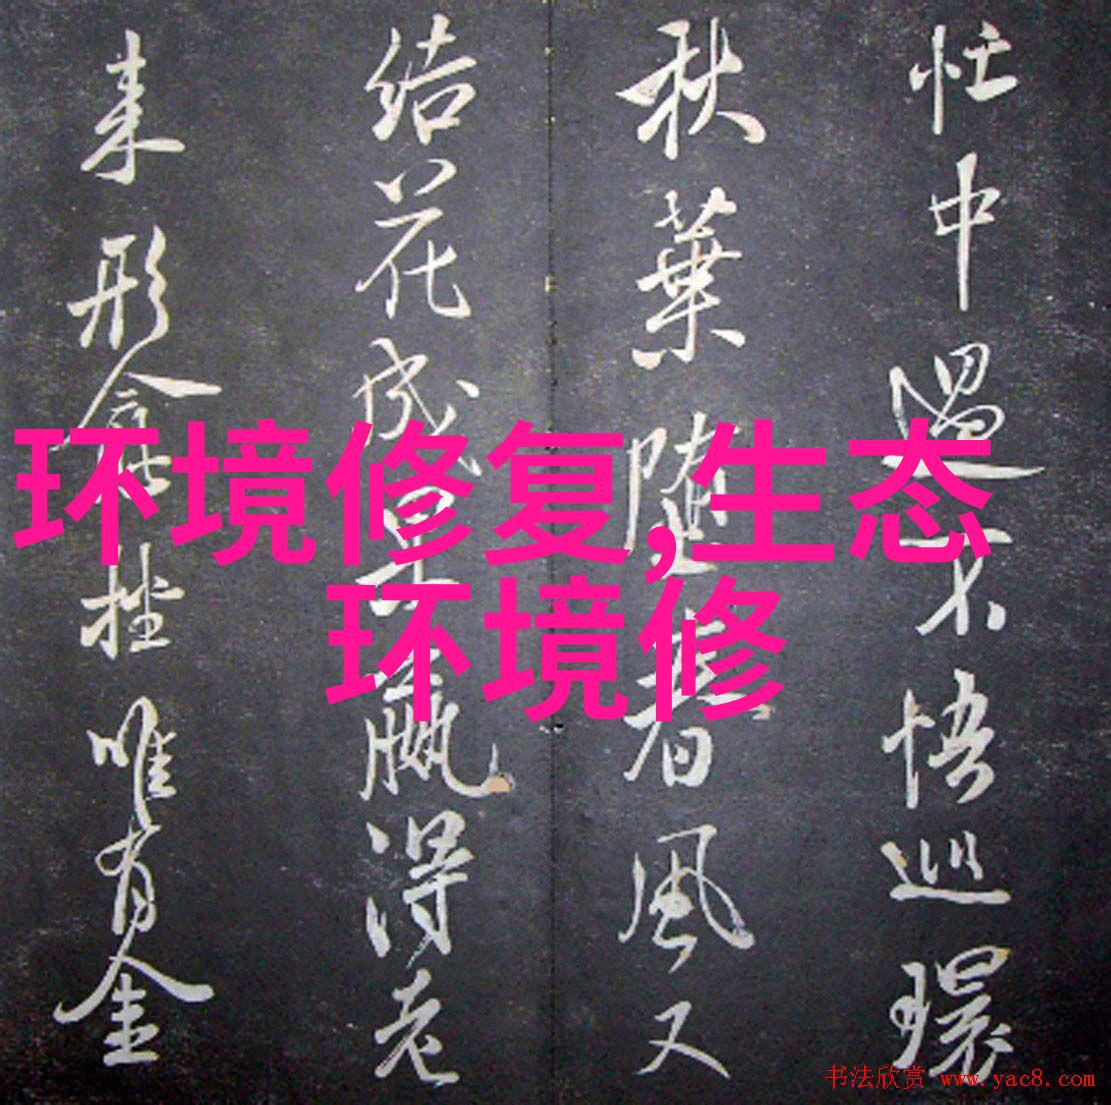 忙中不悟巡環
秋葉隨風又
結花成果贏得老
来形唯有金
环境修复,生态
环境修
书法欣赏 www.yac8.com